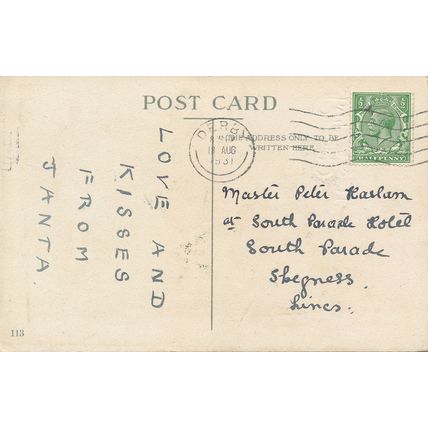 POST CARD
THE ADDRESS ONLY TO BE
WRITTEN HERE
DERBY
AUG
1931
HALFPENNY
LOVE AND
KISSES
FROM
TANTA.
Master Peter Hasham
at South Parade Hotel
South Parade
Skegness.
Lincs.
113